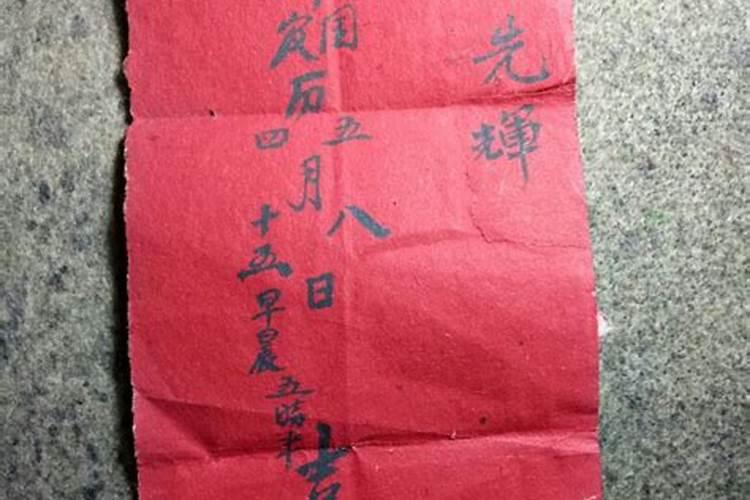 先輝
国五八
历月日吉
农四十五早晨五時半